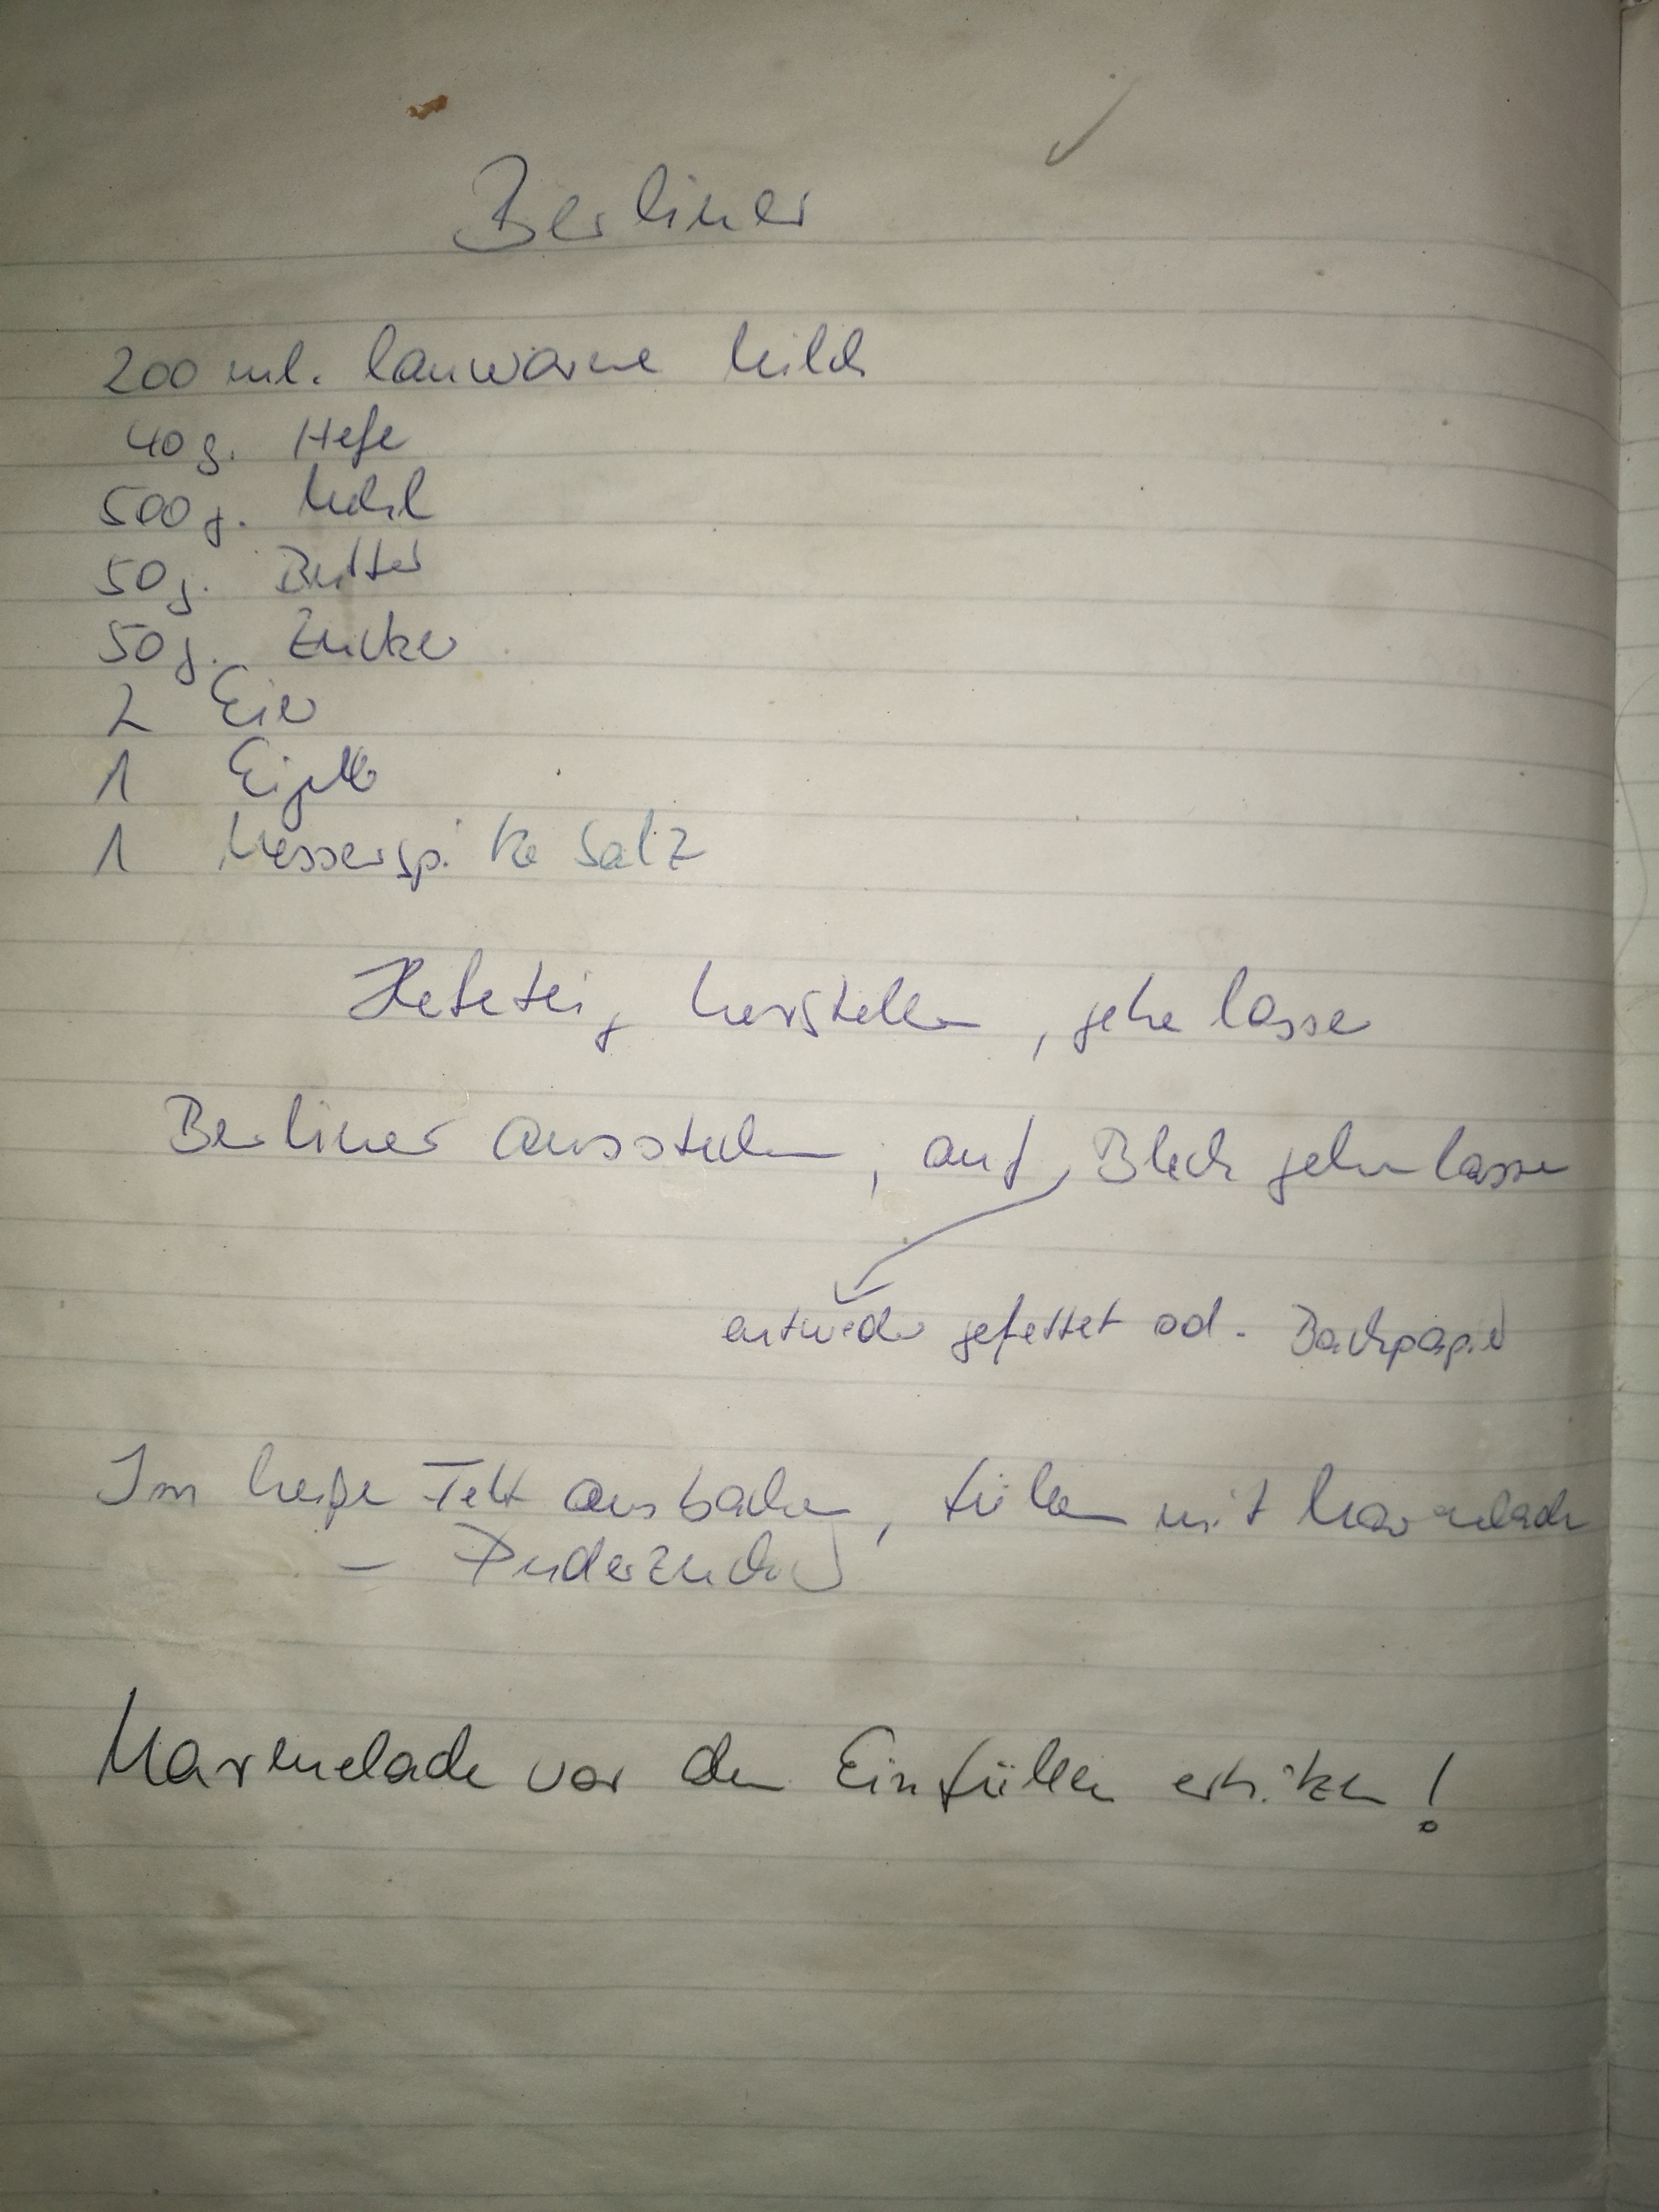 Berliner
200 ml. lauwarme Milch
40 g. Hefe
500 g. Mehl
50 g. Butter
50 g. Zucker
2 Eier
1 Eigelb
1 Messerspitze Salz
Hefeteig herstellen, gehen lassen
Berliner ausstechen, auf Blech gehen lassen
entweder gefettet od. Backpapier
Im heißen Fett ausbacken, füllen mit Marmelade
- Puderzucker
Marmelade vor dem Einfüllen erhitzen!